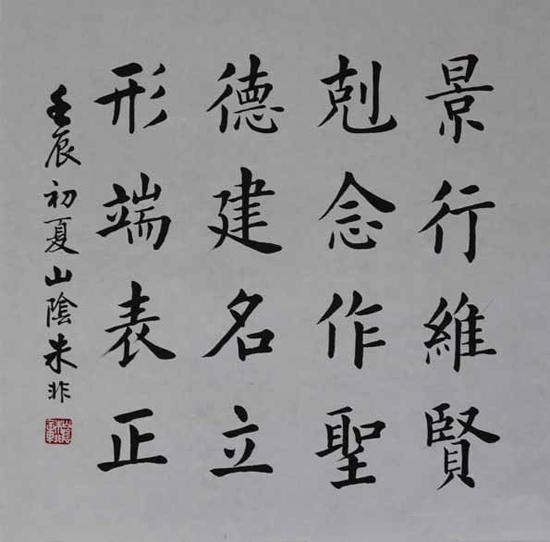 景行維賢
剋念作聖
德建名立
形端表正
壬辰初夏山陰朱非